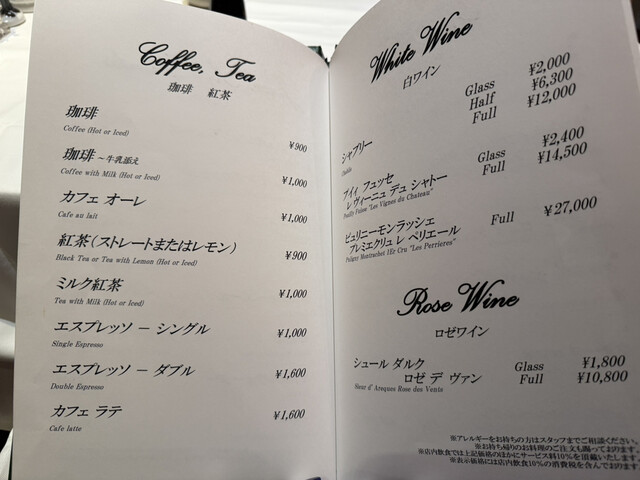 Coffee, Tea
珈琲 紅茶
珈琲
Coffee (Hot or Iced)
¥900
珈琲 ～牛乳添え
Coffee with Milk (Hot or Iced)
¥1,000
カフェ オーレ
Cafe au lait
¥1,000
紅茶(ストレートまたはレモン)
Black Tea or Tea with Lemon (Hot or Iced)
¥900
ミルク紅茶
Tea with Milk (Hot or Iced)
¥1,000
エスプレッソ － シングル
Single Espresso
¥1,000
エスプレッソ － ダブル
Double Espresso
¥1,600
カフェ ラテ
Cafe latte
¥1,600
White Wine
白ワイン
シャブリー
Chablis
Glass ¥2,000
Half ¥6,300
Full ¥12,000
プイィ フュッセ
レ ヴィーニュ デュ シャトー
Pouilly Fuisse "Les Vignes du Chateau"
Glass ¥2,400
Full ¥14,500
ピュリニーモンラッシェ
プルミエクリュ レ ペリエール
Puligny Montrachet 1Er Cru "Les Perrieres"
Full ¥27,000
Rose Wine
ロゼワイン
シュール ダルク
ロゼ デ ヴァン
Sieur d' Arques Rose des Vents
Glass ¥1,800
Full ¥10,800
※アレルギーをお持ちの方はスタッフまでご相談ください。
※お持ち帰りのお料理のご注文も賜っております。
※店内飲食では上記価格のほかにサービス料10％を頂戴いたします。
※表示価格には店内飲食10％の消費税を含んでおります。